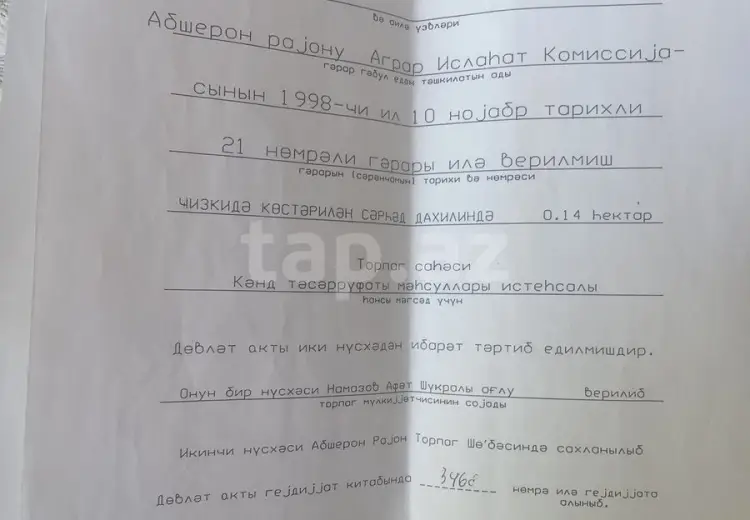 вә аилә үзвләри
Абшерон рајону Аграр Ислаһат Комиссија-
гәрар гәбул едән тәшкилатын ады
сынын 1998-чи ил 10 нојабр тарихли
21 нөмрәли гәрары илә верилмиш
гәрарын (сәрәнчамын) тарихи вә нөмрәси
чизкидә көстәрилән сәрһәд дахилиндә 0.14 һектар
tap.az
Торпаг саһәси
Кәнд тәсәрруфаты мәһсуллары истеһсалы
һансы мәгсәд үчүн
Дөвләт акты ики нүсхәдән ибарәт тәртиб едилмишдир.
Онун бир нүсхәси Намазов Афәт Шукралы оғлу верилиб
торпаг мүлкијјәтчисинин сојады
Икинчи нүсхәси Абшерон Рајон Торпаг Шө'бәсиндә сахланылыб
Дөвләт акты гејдијјат китабында 346 нөмрә илә гејдијјата
алыныб.